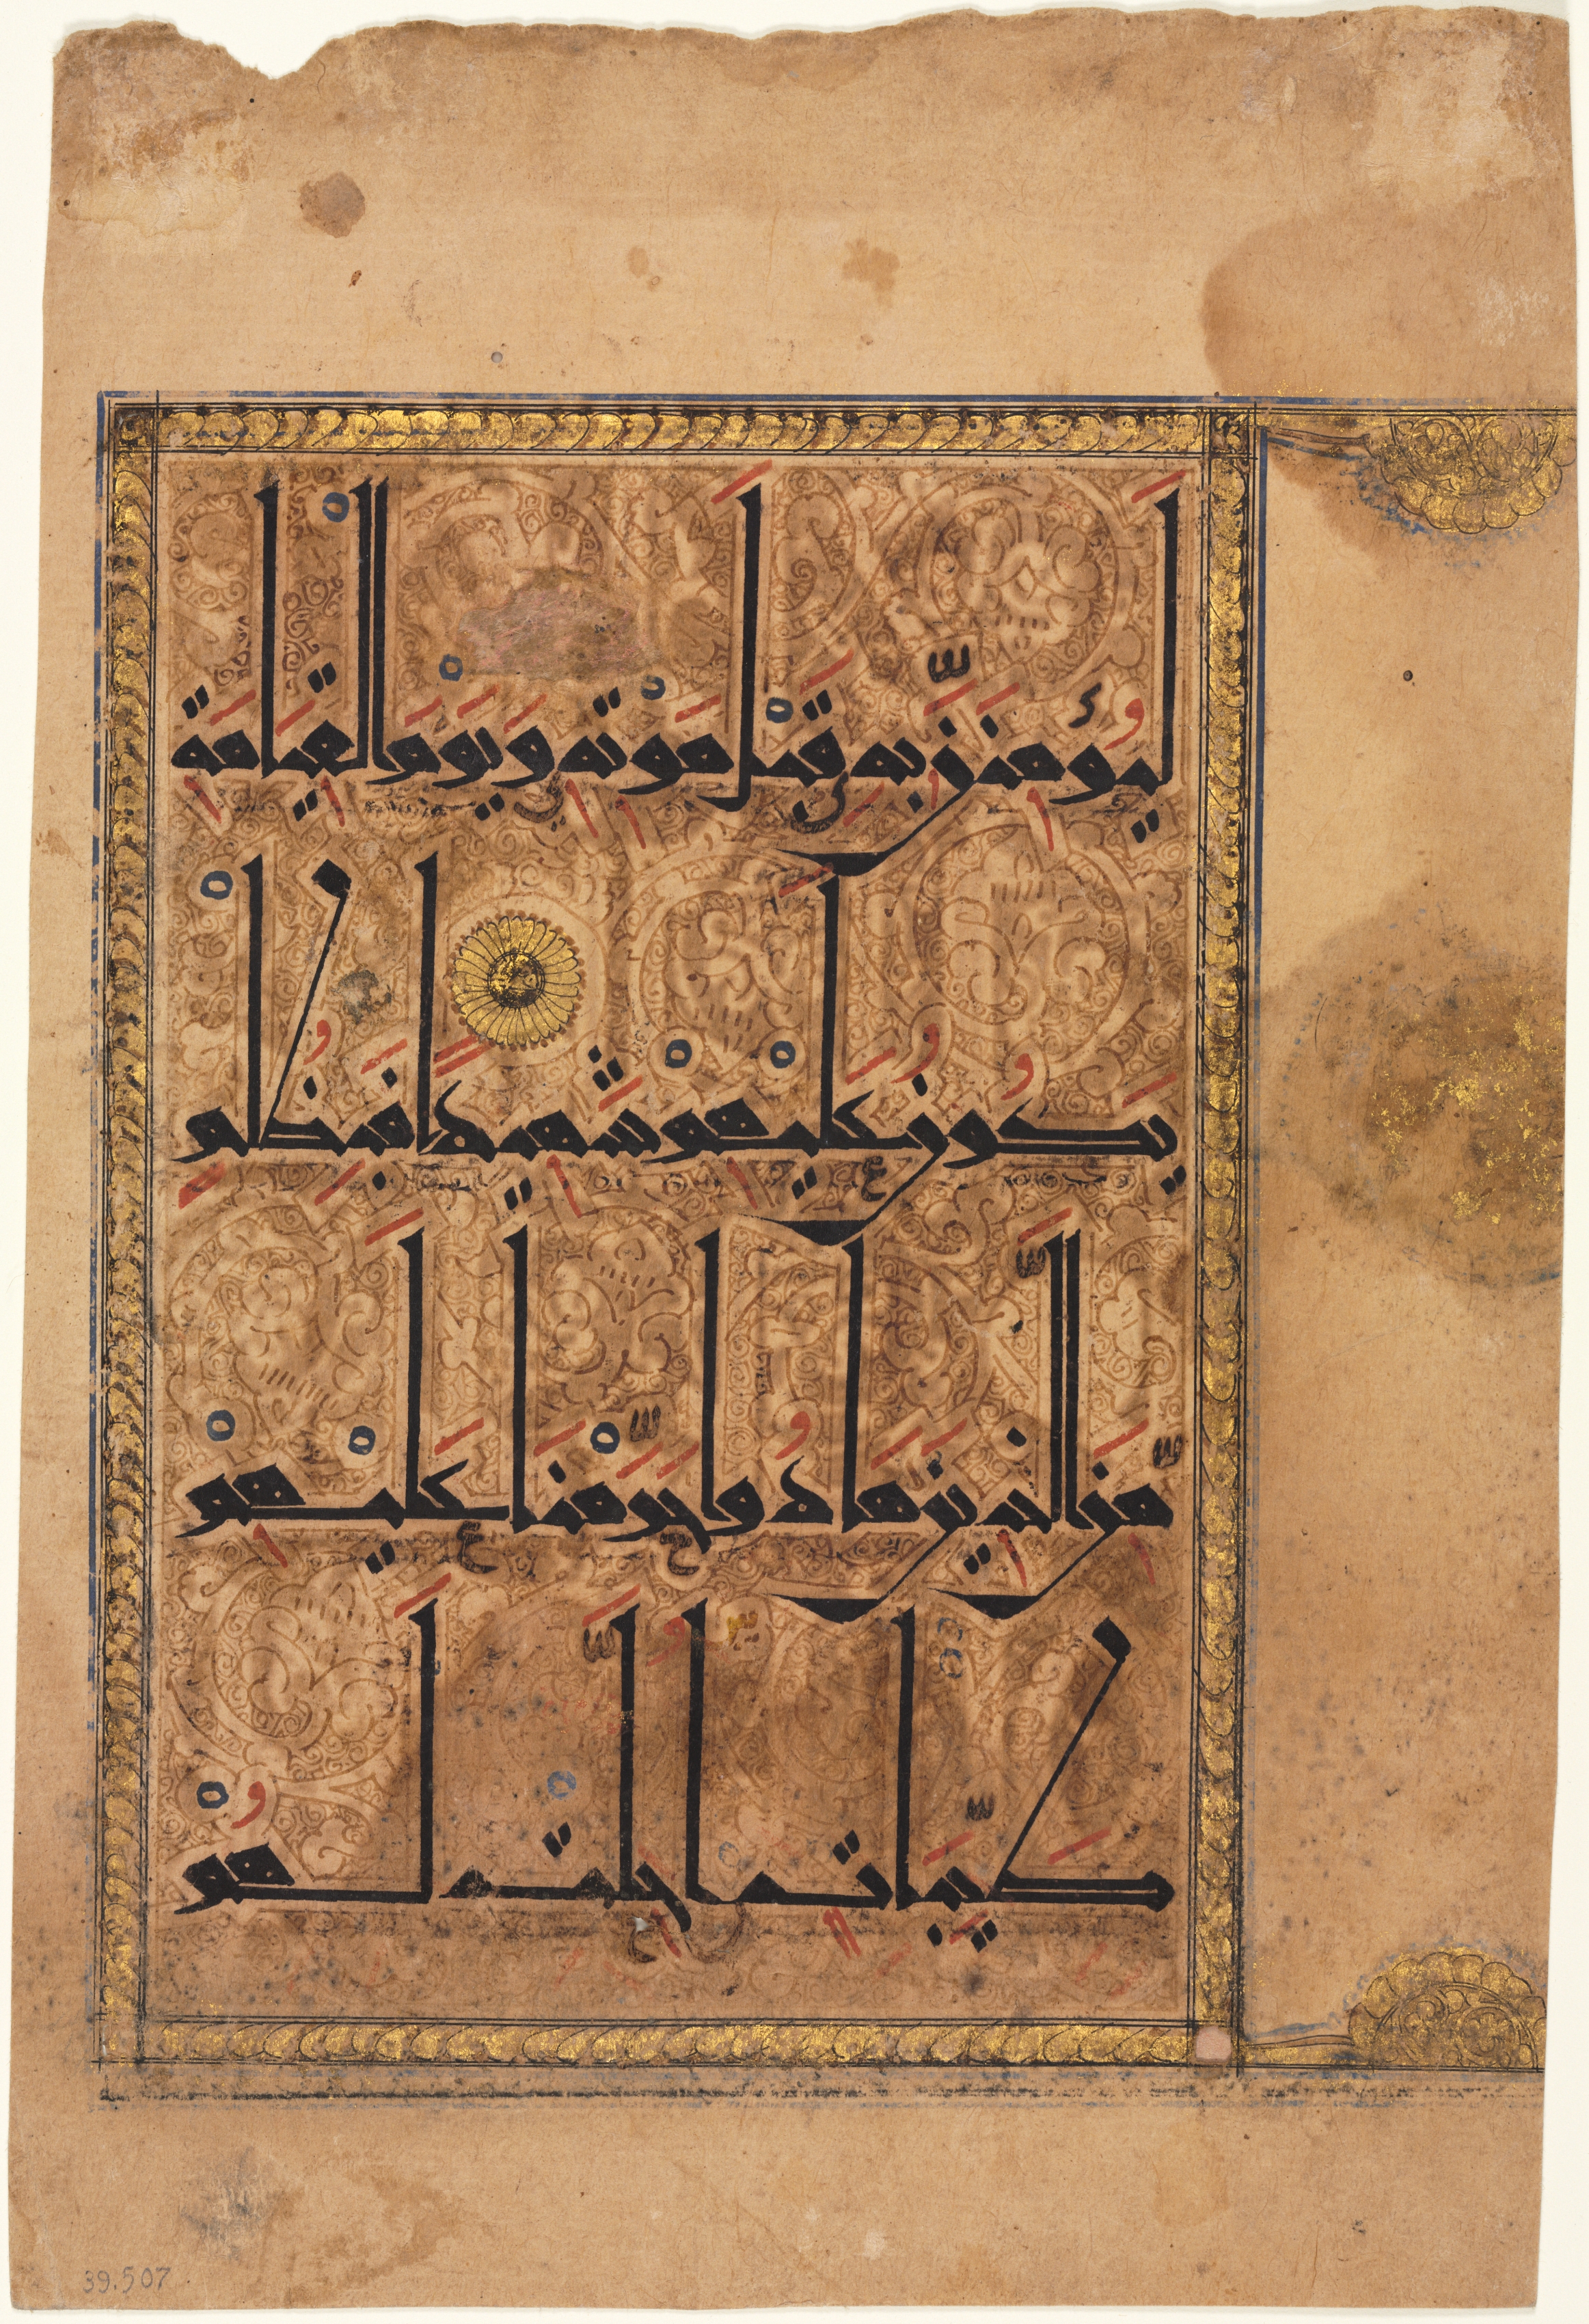 لَيُؤْمِنَنَّ بِهِ قَبْلَ مَوْتِهِ وَيَوْمَ الْقِيَامَةِ
يَكُونُ عَلَيْهِمْ شَهِيدًا فَبِظُلْمٍ
مِنَ الَّذِينَ هَادُوا حَرَّمْنَا عَلَيْهِمْ
طَيِّبَاتٍ اُحِلَّتْ لَهُمْ
39.507